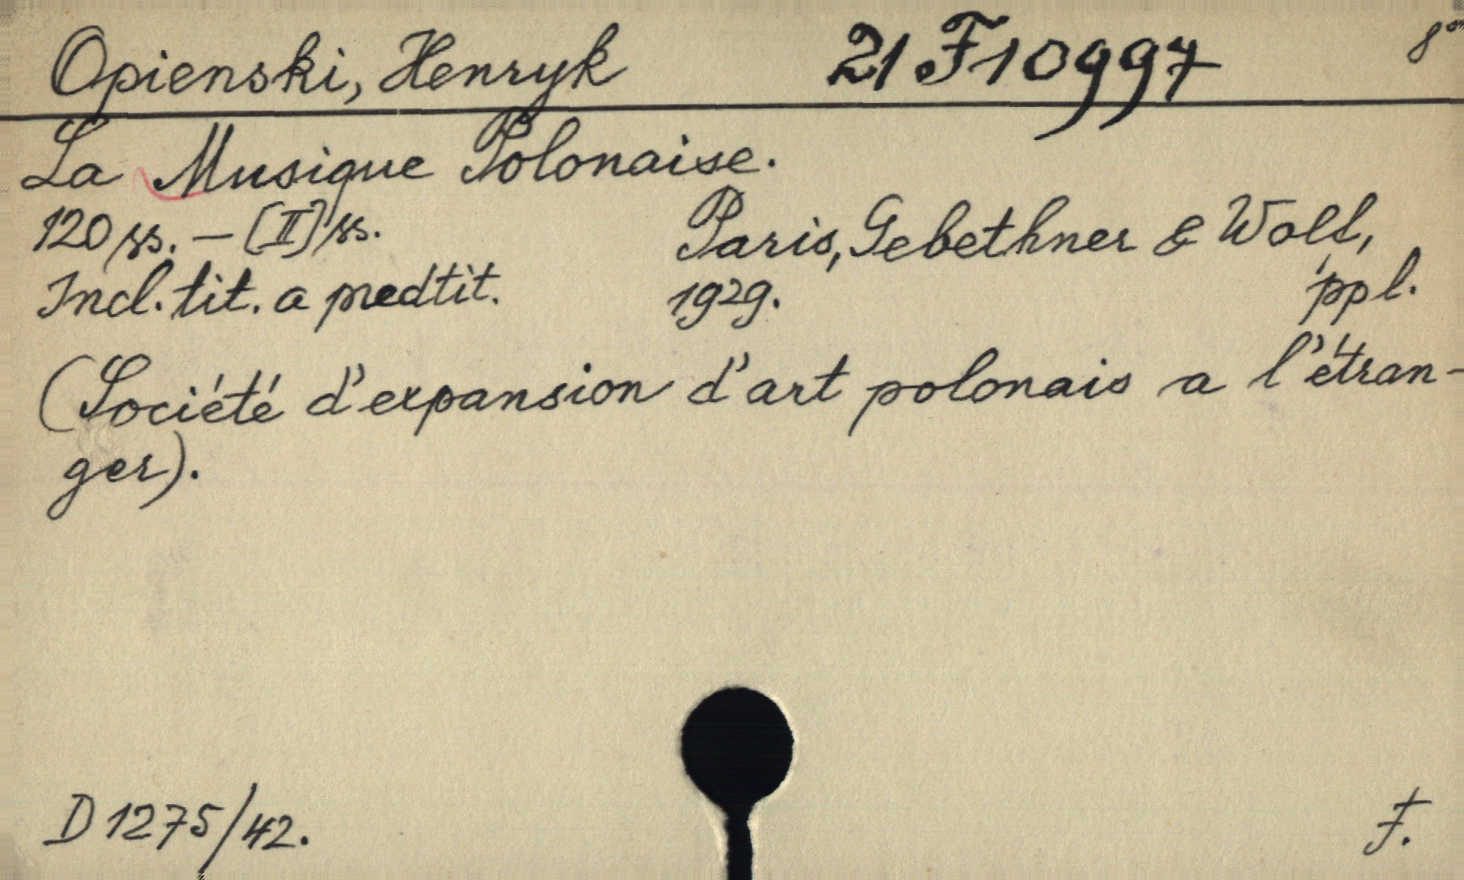 Opienski, Henryk 21 F 10997 8°
La Musique Polonaise.
120 ss. – [II] ss. Paris, Gebethner & Wolf,
Incl. tit. a predtit. 1929. ppl.
(Société d'expansion d'art polonais a l'étran-
ger).
D 1275/42. F.